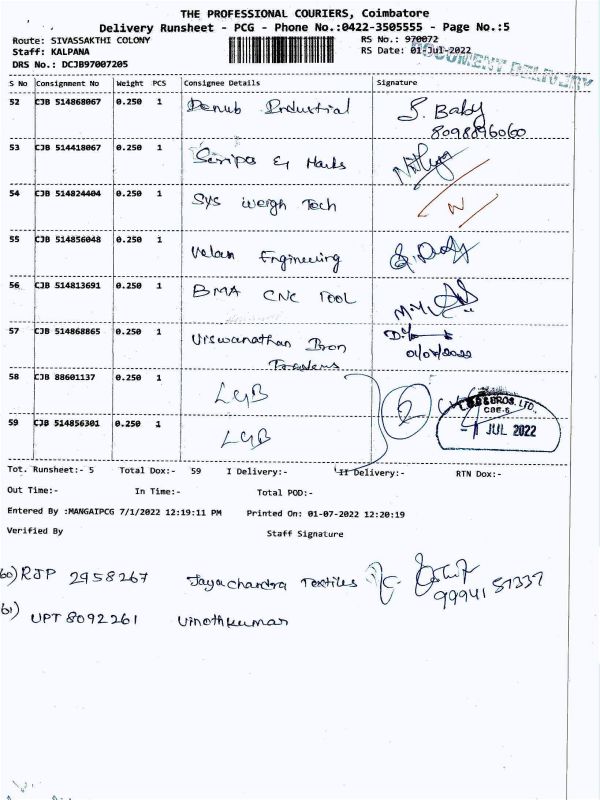 THE PROFESSIONAL COURIERS, Coimbatore
Delivery Runsheet - PCG - Phone No.:0422-3505555 - Page No.:5
Route: SIVASSAKTHI COLONY RS No.: 970072
Staff: KALPANA RS Date: 01-Jul-2022
DRS No.: DCJB97007205
DOCUMENT DELIVERY
S No Consignment No Weight PCS Consignee Details Signature
52 CJB 514868067 0.250 1 Denub Industrial S. Baby
8098896060
53 CJB 514418067 0.250 1 Scripos & Marks
54 CJB 514824404 0.250 1 SYS Weigh Tech N
55 CJB 514856048 0.250 1 Velan Engineering
56 CJB 514813691 0.250 1 BMA CNC TOOL
57 CJB 514868865 0.250 1 Viswanathan Iron
Traders 01/07/2022
58 CJB 88601137 0.250 1 LGB 2
59 CJB 514856301 0.250 1 LGB
& BROS. LTD.,
CBE-6
-1 JUL 2022
Tot. Runsheet:- 5 Total Dox:- 59 I Delivery:- II Delivery:- RTN Dox:-
Out Time:- In Time:- Total POD:-
Entered By :MANGAIPCG 7/1/2022 12:19:11 PM Printed On: 01-07-2022 12:20:19
Verified By Staff Signature
60) RJP 2958267 Jayachandra Textiles
99941 57337
61) UPT 8092261 Vinothkumar